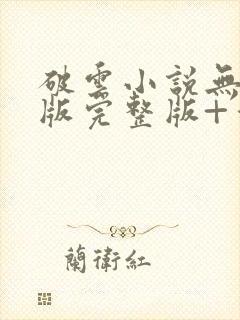 破雲小説無
版完整版+
蘭衛紅